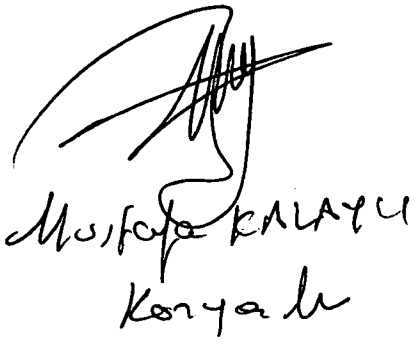 Mustafa KALAYCI
Konyalı